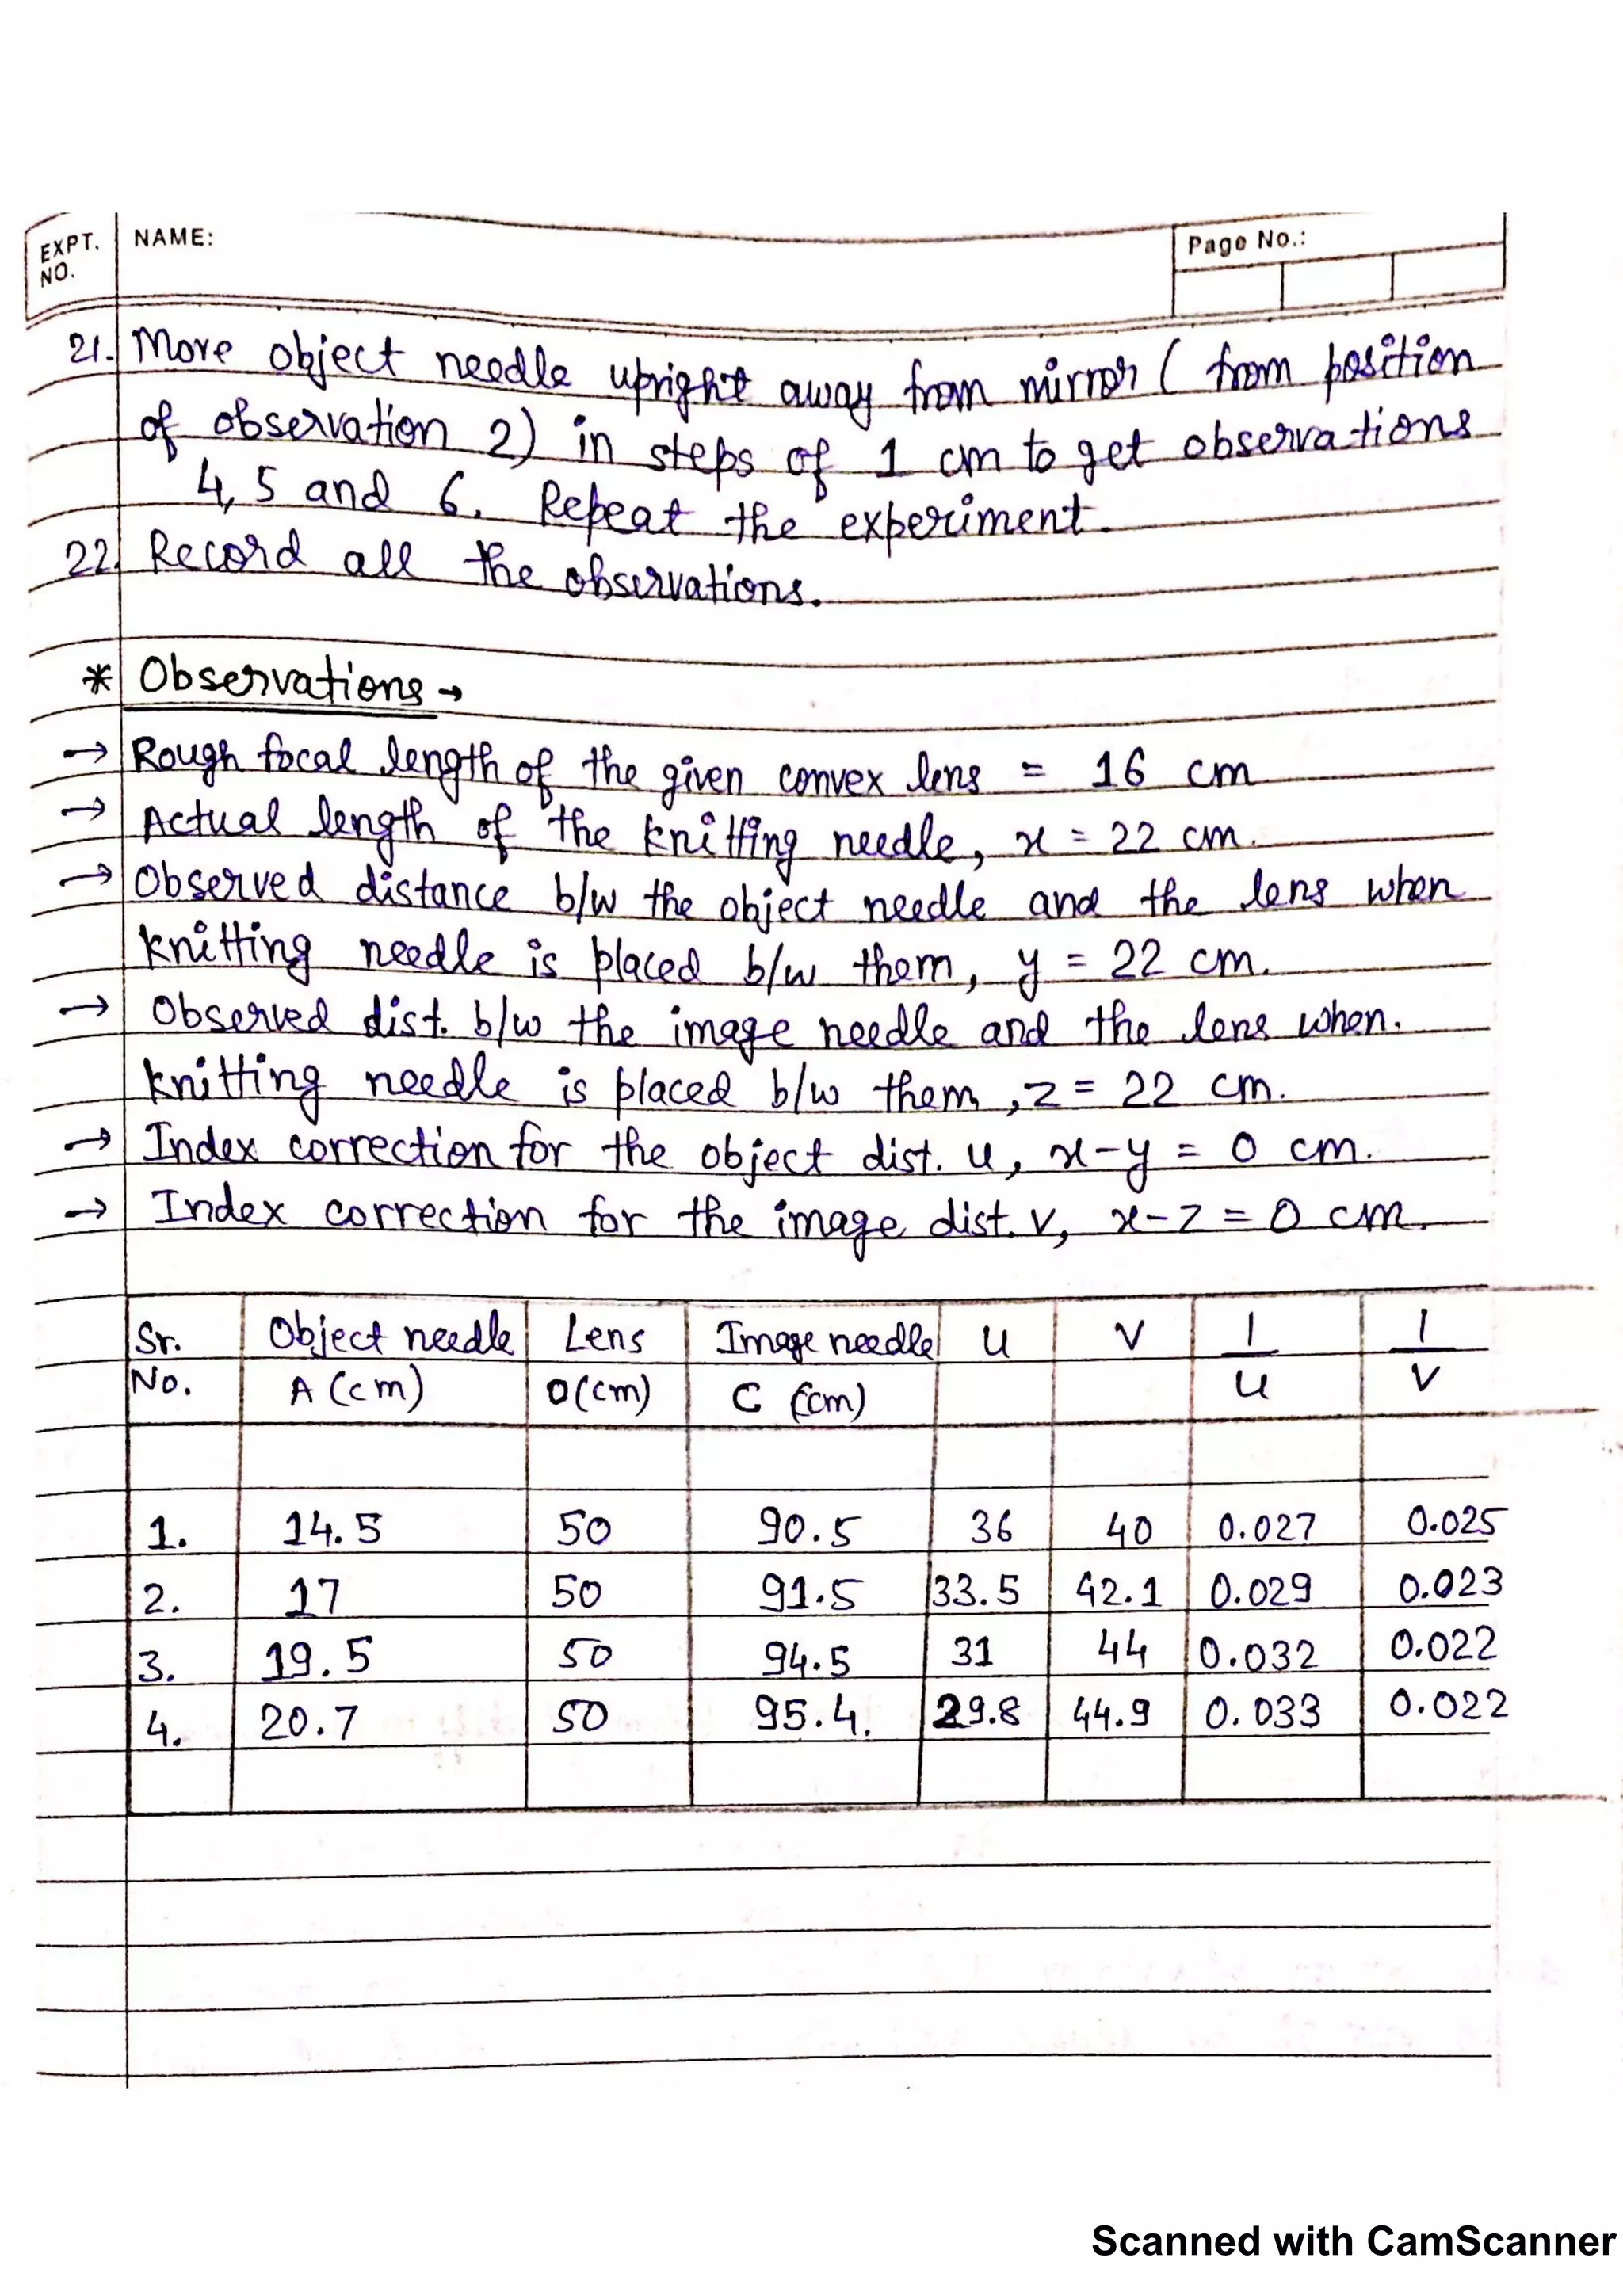 EXPT. NO. NAME: Page No.:
21. Move object needle upright away from mirror ( from position
of observation 2) in steps of 1 cm to get observations
4, 5 and 6. Repeat the experiment.
22. Record all the observations.
* Observations →
→ Rough focal length of the given convex lens = 16 cm
→ Actual length of the knitting needle, x = 22 cm.
→ Observed distance b/w the object needle and the lens when
knitting needle is placed b/w them, y = 22 cm.
→ Observed dist. b/w the image needle and the lens when.
knitting needle is placed b/w them, z = 22 cm.
→ Index correction for the object dist. u, x-y = 0 cm.
→ Index correction for the image dist. v, x-z = 0 cm.
Sr. No. Object needle A (cm) Lens O(cm) Image needle C (cm) u v 1/u 1/v
1. 14.5 50 90.5 36 40 0.027 0.025
2. 17 50 91.5 33.5 42.1 0.029 0.023
3. 19.5 50 94.5 31 44 0.032 0.022
4. 20.7 50 95.4. 29.8 44.9 0.033 0.022
Scanned with CamScanner